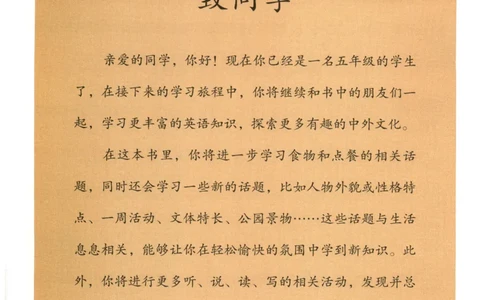 致同学
亲爱的同学，你好！现在你已经是一名五年级的学生
了，在接下来的学习旅程中，你将继续和书中的朋友们一
起，学习更丰富的英语知识，探索更多有趣的中外文化。
在这本书里，你将进一步学习食物和点餐的相关话
题，同时还会学习一些新的话题，比如人物外貌或性格特
点、一周活动、文体特长、公园景物……这些话题与生活
息息相关，能够让你在轻松愉快的氛围中学到新知识。此
外，你将进行更多听、说、读、写的相关活动，发现并总